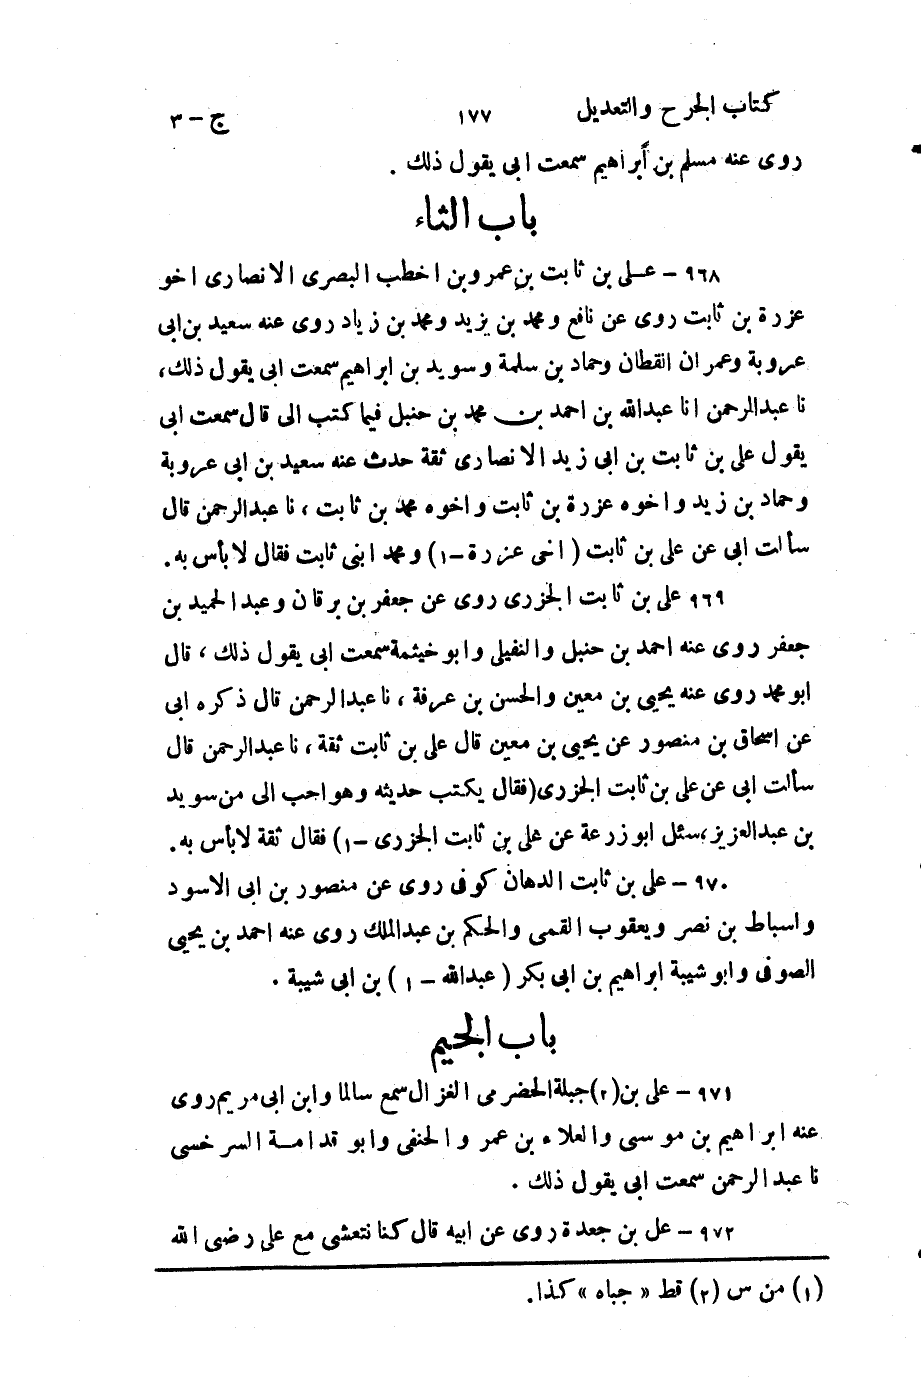 كتاب الجرح والتعديل ١٧٧ ج - ٣
روى عنه مسلم بن أبراهيم سمعت ابى يقول ذلك .
باب الثاء
٩٦٨ - على بن ثابت بن عمرو بن اخطب البصرى الانصارى اخو
عزرة بن ثابت روى عن نافع ومحمد بن يزيد ومحمد بن زياد روى عنه سعيد بن ابى
عروبة وعمران القطان وحماد بن سلمة وسويد بن ابراهيم سمعت ابى يقول ذلك،
نا عبدالرحمن انا عبدالله بن احمد بن محمد بن حنبل فيما كتب الى قال سمعت ابى
يقول على بن ثابت بن ابى زيد الانصارى ثقة حدث عنه سعيد بن ابى عروبة
وحماد بن زيد واخوه عزرة بن ثابت واخوه محمد بن ثابت ، نا عبدالرحمن قال
سألت ابى عن على بن ثابت ( اخى عزرة -١) ومحمد ابنى ثابت فقال لا بأس به.
٩٦٩ على بن ثابت الجزرى روى عن جعفر بن برقان وعبد الحميد بن
جعفر روى عنه احمد بن حنبل والنفيلى وابو خيثمة سمعت ابى يقول ذلك ، قال
ابو محمد روى عنه يحيى بن معين والحسن بن عرفة ، نا عبدالرحمن قال ذكره ابى
عن اسحاق بن منصور عن يحيى بن معين قال على بن ثابت ثقة ، نا عبدالرحمن قال
سألت ابى عن على بن ثابت الجزرى(فقال يكتب حديثه وهو احب الى من سويد
بن عبدالعزيز،سئل ابو زرعة عن على بن ثابت الجزرى -١) فقال ثقة لا بأس به.
٩٧٠ - على بن ثابت الدهان كوفى روى عن منصور بن ابى الاسود
واسباط بن نصر ويعقوب القمى والحكم بن عبدالملك روى عنه احمد بن يحيى
الصوفى وابو شيبة ابراهيم بن ابى بكر ( عبدالله - ١ ) بن ابى شيبة .
باب الجيم
٩٧١ - على بن(٢)جبلة الحضرمى الغزال سمع سالما وابن ابى مريم روى
عنه ابراهيم بن موسى والعلاء بن عمرو الحنفى وابو قدامة السرخسى
نا عبد الرحمن سمعت ابى يقول ذلك .
٩٧٢ - على بن جعدة روى عن ابيه قال كنا نتعشى مع على رضى الله
(١) من س (٢) قط « جباه » كذا.